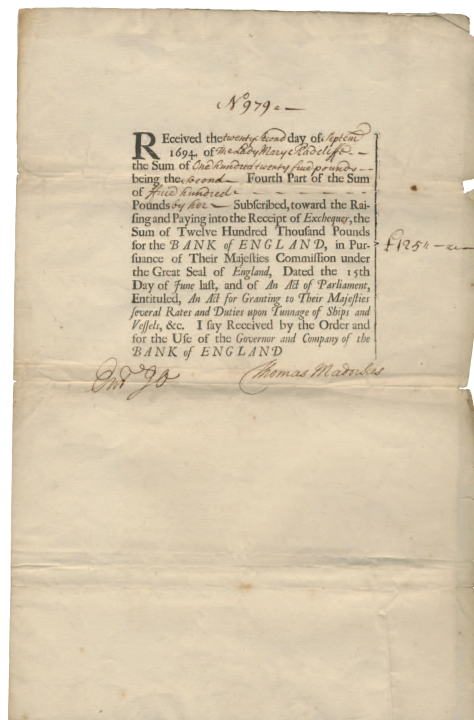 No 979
REceived the twenty second day of Septem
1694. of The Lady Mary Radcliffe
the Sum of One hundred twenty five pounds
being the second Fourth Part of the Sum
of ffive hundred
Pounds by her Subſcribed, toward the Rai-
ſing and Paying into the Receipt of Exchequer, the
Sum of Twelve Hundred Thouſand Pounds
for the BANK of ENGLAND, in Pur-
ſuance of Their Majeſties Commiſſion under
the Great Seal of England, Dated the 15th
Day of June laſt, and of An Act of Parliament,
Entituled, An Act for Granting to Their Majeſties
ſeveral Rates and Duties upon Tunnage of Ships and
Veſſels, &c. I ſay Received by the Order and
for the Uſe of the Governor and Company of the
BANK of ENGLAND
£125
Thomas